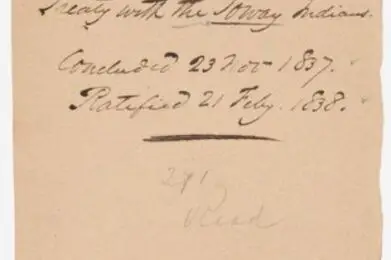 Treaty with the Ioway Indians.
Concluded 23 Nov 1837.
Ratified 21 Feby. 1838.